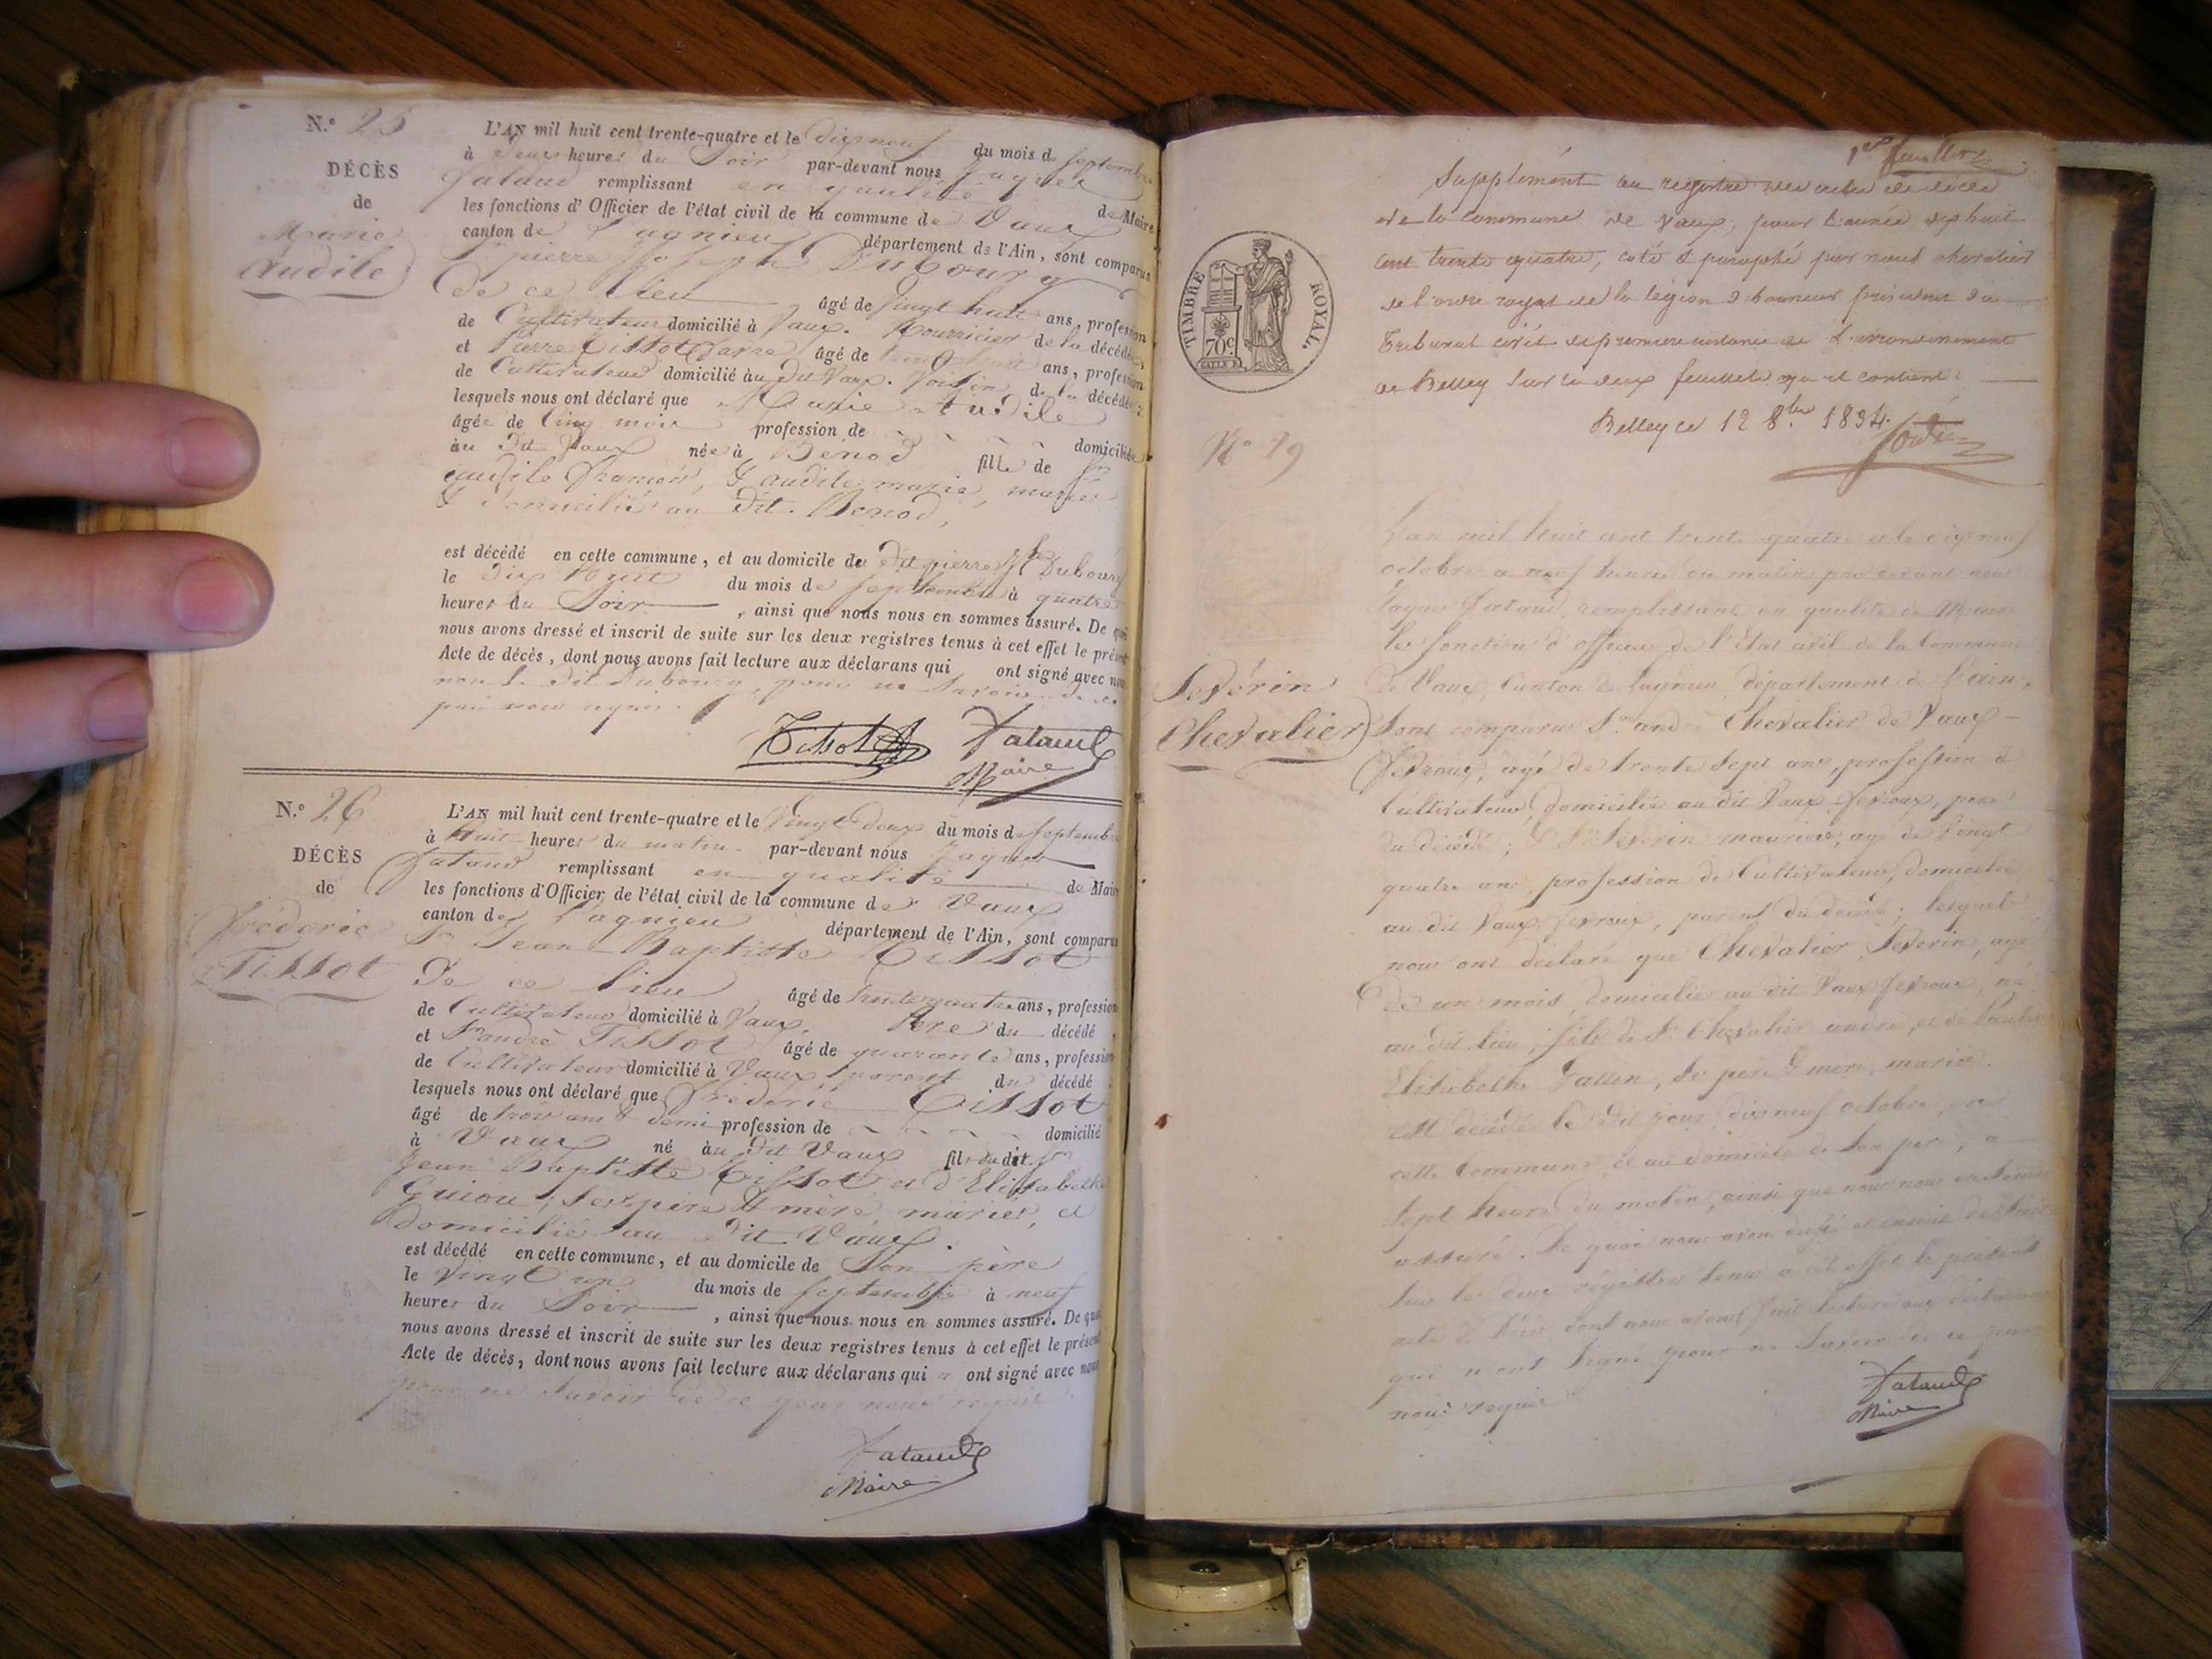 N.º 25
DÉCÈS
de
Marie
Audile
L'AN mil huit cent trente-quatre et le dix neuf du mois de septembre
à deux heures du Soir par-devant nous Jaques
Fataud remplissant en qualité de Maire
les fonctions d'Officier de l'état civil de la commune de Vaux
canton de Lagnieu département de l'Ain, sont comparus
Sr pierre Joseph Dubourg
De ce lieu âgé de vingt huit ans, profession
de Cultivateur domicilié à Vaux. Nourricier de la décédée,
et Pierre Tissot âgé de ans, profession
de Cultivateur domicilié au dit Vaux. Voisin de la décédée;
lesquels nous ont déclaré que Marie Audile
âgée de Cinq mois profession de domiciliée
au dit Vaux née à Benod fille de Sr
audile françois, & audile marie, mariés
& domiciliés au dit Benod,
est décédé en cette commune, et au domicile du dit pierre Jh Dubourg
le dix huit du mois de septembre à quatre
heures du Soir, ainsi que nous nous en sommes assuré. De quoi
nous avons dressé et inscrit de suite sur les deux registres tenus à cet effet le présent
Acte de décès, dont nous avons fait lecture aux déclarans qui ont signé avec nous
non l. dit Dubourg, pour ne Savoir de ce
par nous requis.
Tissot Fataud
Maire
N.º 26
DÉCÈS
de
Fréderic
Tissot
L'AN mil huit cent trente-quatre et le vingt deux du mois de septembre
à huit heures du matin par-devant nous Jaques
Fataud remplissant en qualité de Maire
les fonctions d'Officier de l'état civil de la commune de Vaux
canton de Lagnieu département de l'Ain, sont comparus
Sr Jean Baptiste Tissot
De ce lieu âgé de trente quatre ans, profession
de Cultivateur domicilié à Vaux, Père du décédé,
et Sr andré Tissot âgé de quarante ans, profession
de Cultivateur domicilié à Vaux, parent du décédé
lesquels nous ont déclaré que fréderic Tissot
âgé de trois ans & demi profession de domicilié
à Vaux né au dit Vaux fils du dit Sr
Jean Baptiste Tissot et d'Elisabethe
Guiou, ses père & mère, mariés, et
domiciliés au dit Vaux.
est décédé en cette commune, et au domicile de Son père
le vingt un du mois de septembre à neuf
heures du Soir, ainsi que nous nous en sommes assuré. De quoi
nous avons dressé et inscrit de suite sur les deux registres tenus à cet effet le présent
Acte de décès, dont nous avons fait lecture aux déclarans qui n ont signé avec nous
pour ne Savoir de ce par nous requis
Fataud
Maire
1er feuillet
TIMBRE ROYAL.
70c.
Supplément au registre des actes de décès
de la commune de Vaux, pour l'année dix huit
cent trente quatre, coté & paraphé par nous chevalier
de l'ordre royal de la légion d'honneur président du
Tribunal civil de première instance de L'arrondissement
de Belley Sur les deux feuillets qu'il contient.
Belley ce 12 8bre 1834.
Nº 29
Sevérin
Chevalier
L'an mil huit cent trente quatre et le dix neuf
octobre a neuf heure du matin, par devant nous
Jaques Fataud, remplissant en qualité de Maire
les fonction d'officier de l'Etat civil de la Commune
De Vaux, Canton de Lagnieu, département de l'ain,
Sont comparus Sr andré Chevalier de Vaux
fevroux, agé de trente Sept ans, profession de
Cultivateur, domicilié au dit Vaux fevroux, père
du décédé; & Sr Séverin maurice, agé de Vingt
quatre ans, profession de Cultivateur, domicilié
au dit Vaux fevroux, parent du décédé; lesquels
nous ont déclaré que Chevalier Séverin, agé
de un mois, domicilié au dit Vaux fevroux, né
au dit lieu, fils de Sr Chevalier andré, et de
Elisabethe Vallin, Ses père & mère, mariés.
est décédé le dit jour dix neuf octobre, en
cette Commune et au domicile de Son père, a
Sept heure du matin, ainsi que nous nous en Somme
assuré. De quoi nous avons dressé et inscrit de Suite
Sur les deux régistres tenus a cet effet le présent
acte de décès, dont nous avons fait lecture aux déclarans
qui n'ont Signé pour ne Savoir de ce par
nous requis
Fataud
Maire